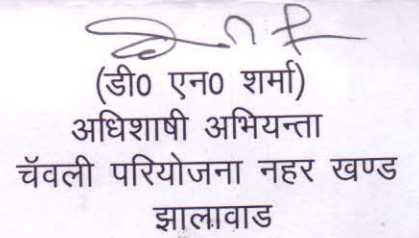 (डी0 एन0 शर्मा)
अधिशाषी अभियन्ता
चॅवली परियोजना नहर खण्ड
झालावाड